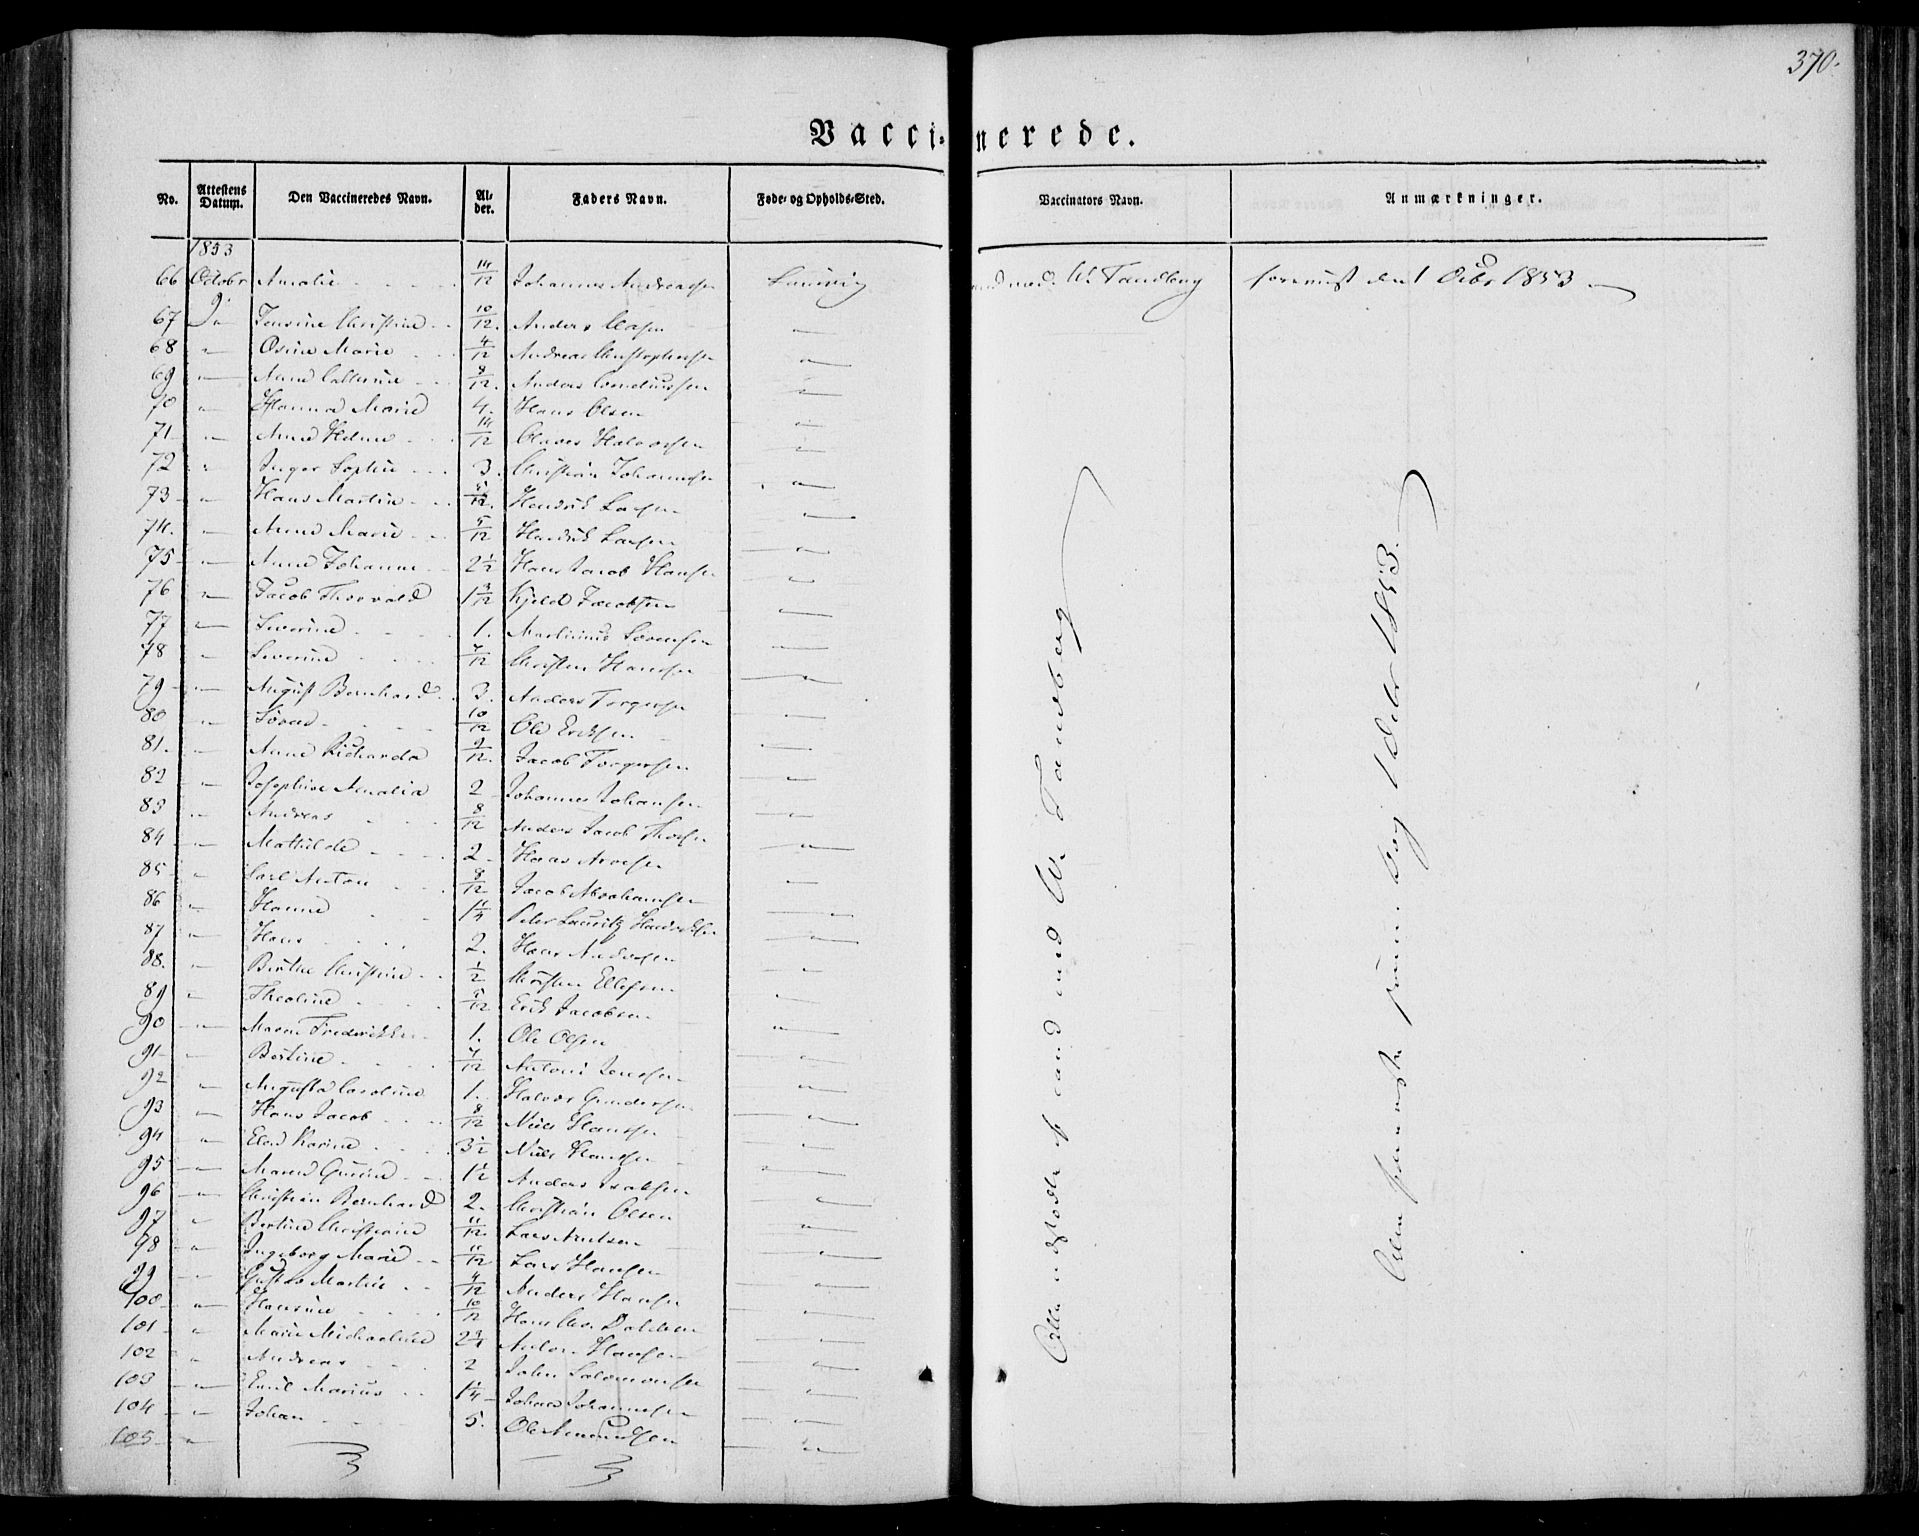 370.
Vaccinerede.
No. Attestens Datum. Den Vaccineredes Navn. Alder. Faders Navn. Føde- og Opholds-Sted. Vaccinators Navn. Anmærkninger.
1853
66 Octobr Amalie 14/12 Johannes Andreassen Laurvig W. Tandberg foreviist den 1 Octbr 1853
67 Jensine Christine 10/12. Anders
68 " Osine Marie 4/12 Andreas Christophersen "
69 " Anne Cathrine 8/12. Anders "
70 " Hanna Marie 4. Hans Olsen "
71 " Anne Helene 14/12 Halvorsen "
72 " Inger Sophie 3. Christian Johannesen "
73 " Hans Martin Hendrik Larsen "
74. " Anne Marie 5/12 Hendrik Larsen "
75 " Anne Johanne 2 1/2 Hans Jacob Hansen "
76 " Jacob Thorvald 1 3/12 Kjeld Jacobsen "
77 " Severine 1. Martinius Sørensen "
78 " Severine 7/12 Christen Hansen "
79 " August Bernhard 3. Anders Torgersen "
80 " Søren 10/12 Ole Eriksen "
81. " Anne Richarda 9/12. Jacob Torgersen "
82 " Josephine Amalia 2 Johannes Johansen "
83 " Andreas 8/12 Anders Jacob "
84 " Mathilde 2. Hans "
85 " Carl Anton 8/12 Jacob Abrahamsen "
86 " Hanne 1 1/4 Peder Lauritz "
87 " Hans 2. Hans Andersen "
88. " Berthe Christine 1/2 Christen Ellefsen "
89 " Theoline 5/12 Erik Jacobsen "
90 " Maren Fredrikke 1. Ole Olsen "
91 " Bertine 7/12 Anton Jensen "
92 " Augusta Caroline 1. Halvor Gundersen "
93 " Hans Jacob 8/12 Niels Hansen "
94 " Karine 3 1/2 Niels Hansen "
95 " Maren 1 1/2 Anders "
96 " Christian Bernhard 2. Christian Olsen "
97 " Bertine Christiane 11/12. Lars "
98 " Ingeborg Marie 11/12 Lars Hansen "
99 " Gustav Martin 4/12 Anders Hansen "
100 " Hansine 10/12 Hans "
101 " Marie Michaeline 2 3/4 Anders Hansen "
102 " Andreas 2 John Salomonsen "
103 " Emil Marius 1 1/4 Johan Johannesen "
104 " Johan 5. Ole Amundsen "
105 " "
Alle udstedte af cand med W. Tandberg
Alle foreviste 1 Octbr 1853.